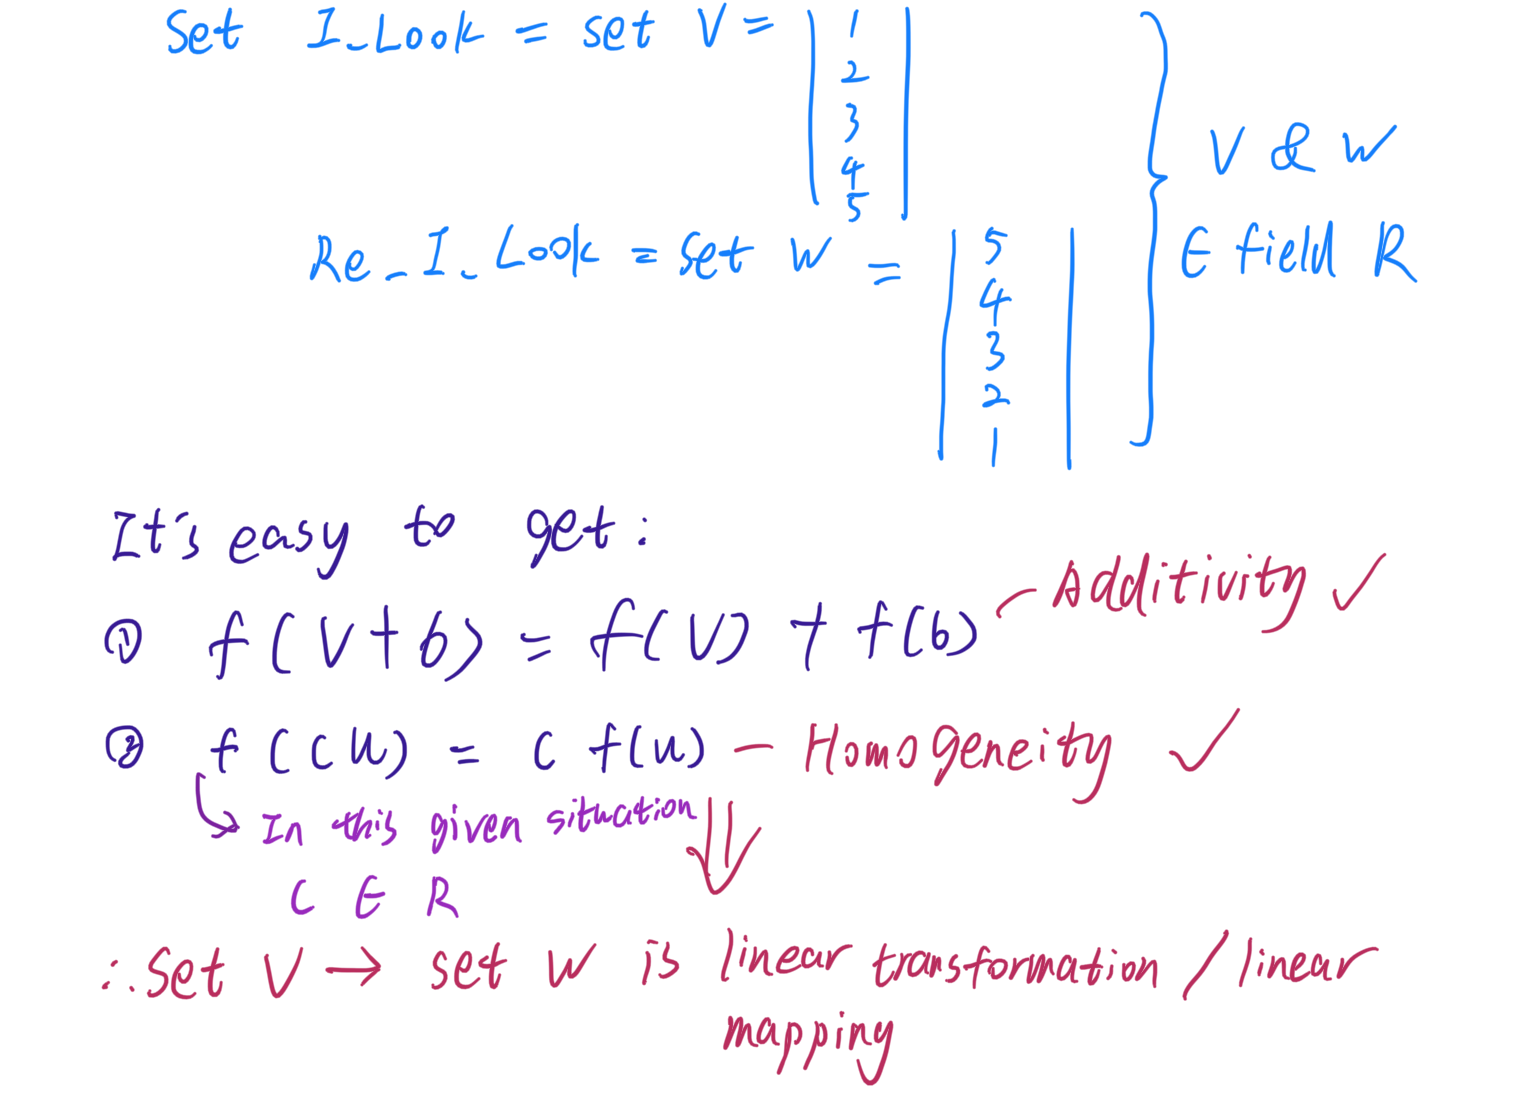 Set I_Look = set V = | 1 2 3 4 5 |
V & W
Re_I_Look = set W = | 5 4 3 2 1 |
∈ field R
It's easy to get:
① f(V+b) = f(V) + f(b) — Additivity ✓
② f(cu) = c f(u) — Homogeneity ✓
↳ In this given situation
C ∈ R
⇓
∴ Set V → set W is linear transformation / linear
mapping